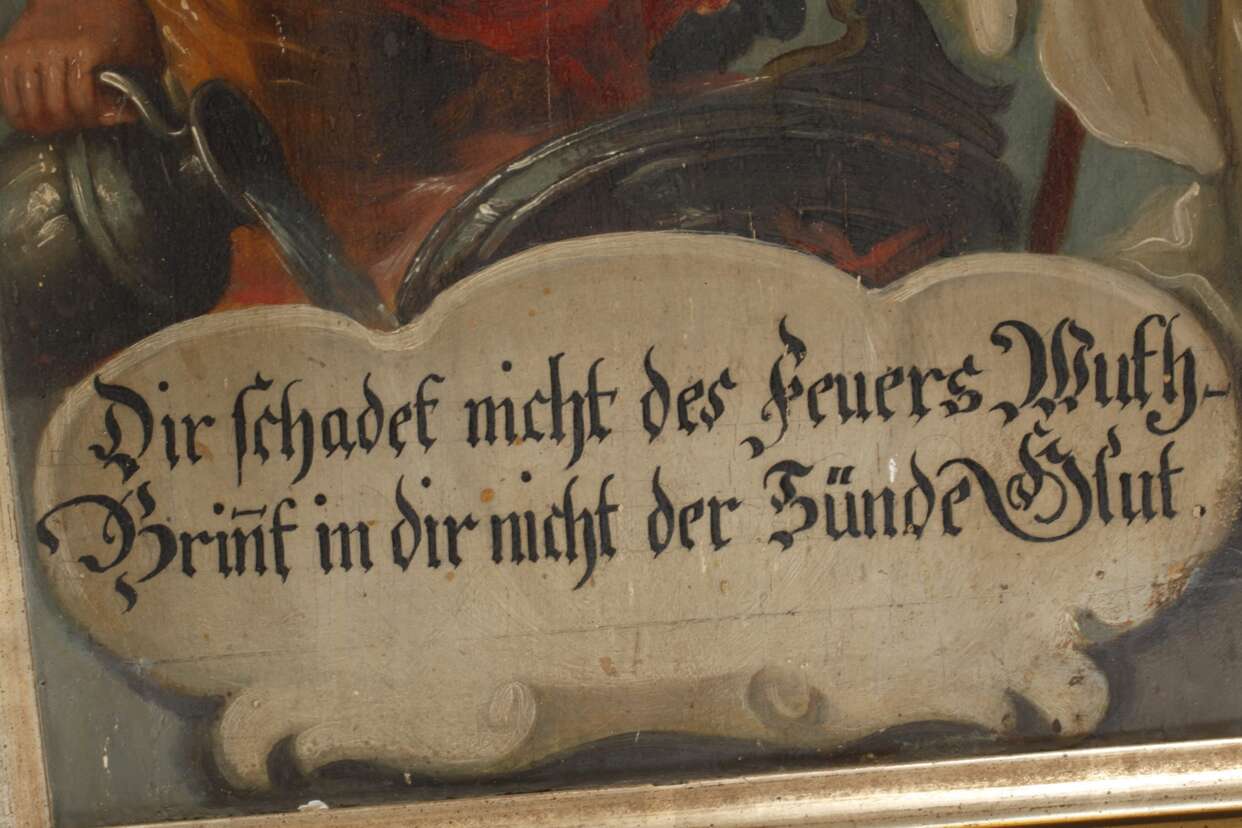 Dir ſchadet nicht des Feuers Wuth-
Brin̄t in dir nicht der Sünde Glut.